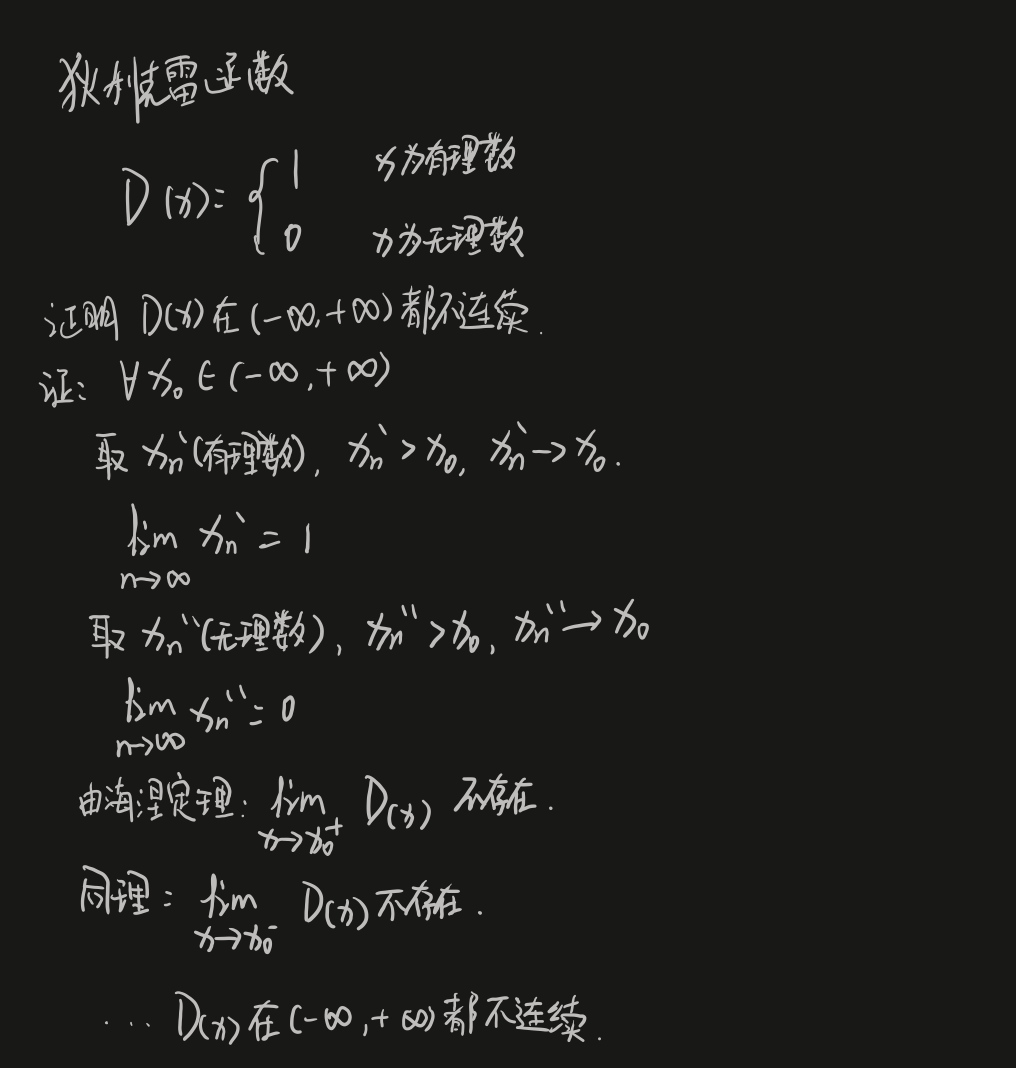 狄利克雷函数
D(x)= { 1 x为有理数
0 x为无理数
证明 D(x)在(-∞,+∞)都不连续.
证: ∀x₀∈(-∞,+∞)
取 xₙ`(有理数), xₙ`>x₀, xₙ`→x₀.
lim xₙ` = 1
n→∞
取 xₙ``(无理数), xₙ``>x₀, xₙ``→x₀
lim xₙ``= 0
n→∞
由海涅定理: lim D(x) 不存在.
x→x₀⁺
同理: lim D(x)不存在.
x→x₀⁻
... D(x)在(-∞,+∞)都不连续.